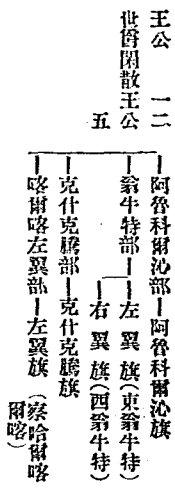 王公　一二
世爵閑散王公
五
阿魯科爾沁部　阿魯科爾沁旗
翁牛特部　左翼旗(東翁牛特)
右翼旗(西翁牛特)
克什克騰部　克什克騰旗
喀爾喀左翼部　左翼旗(察哈爾喀
爾喀)